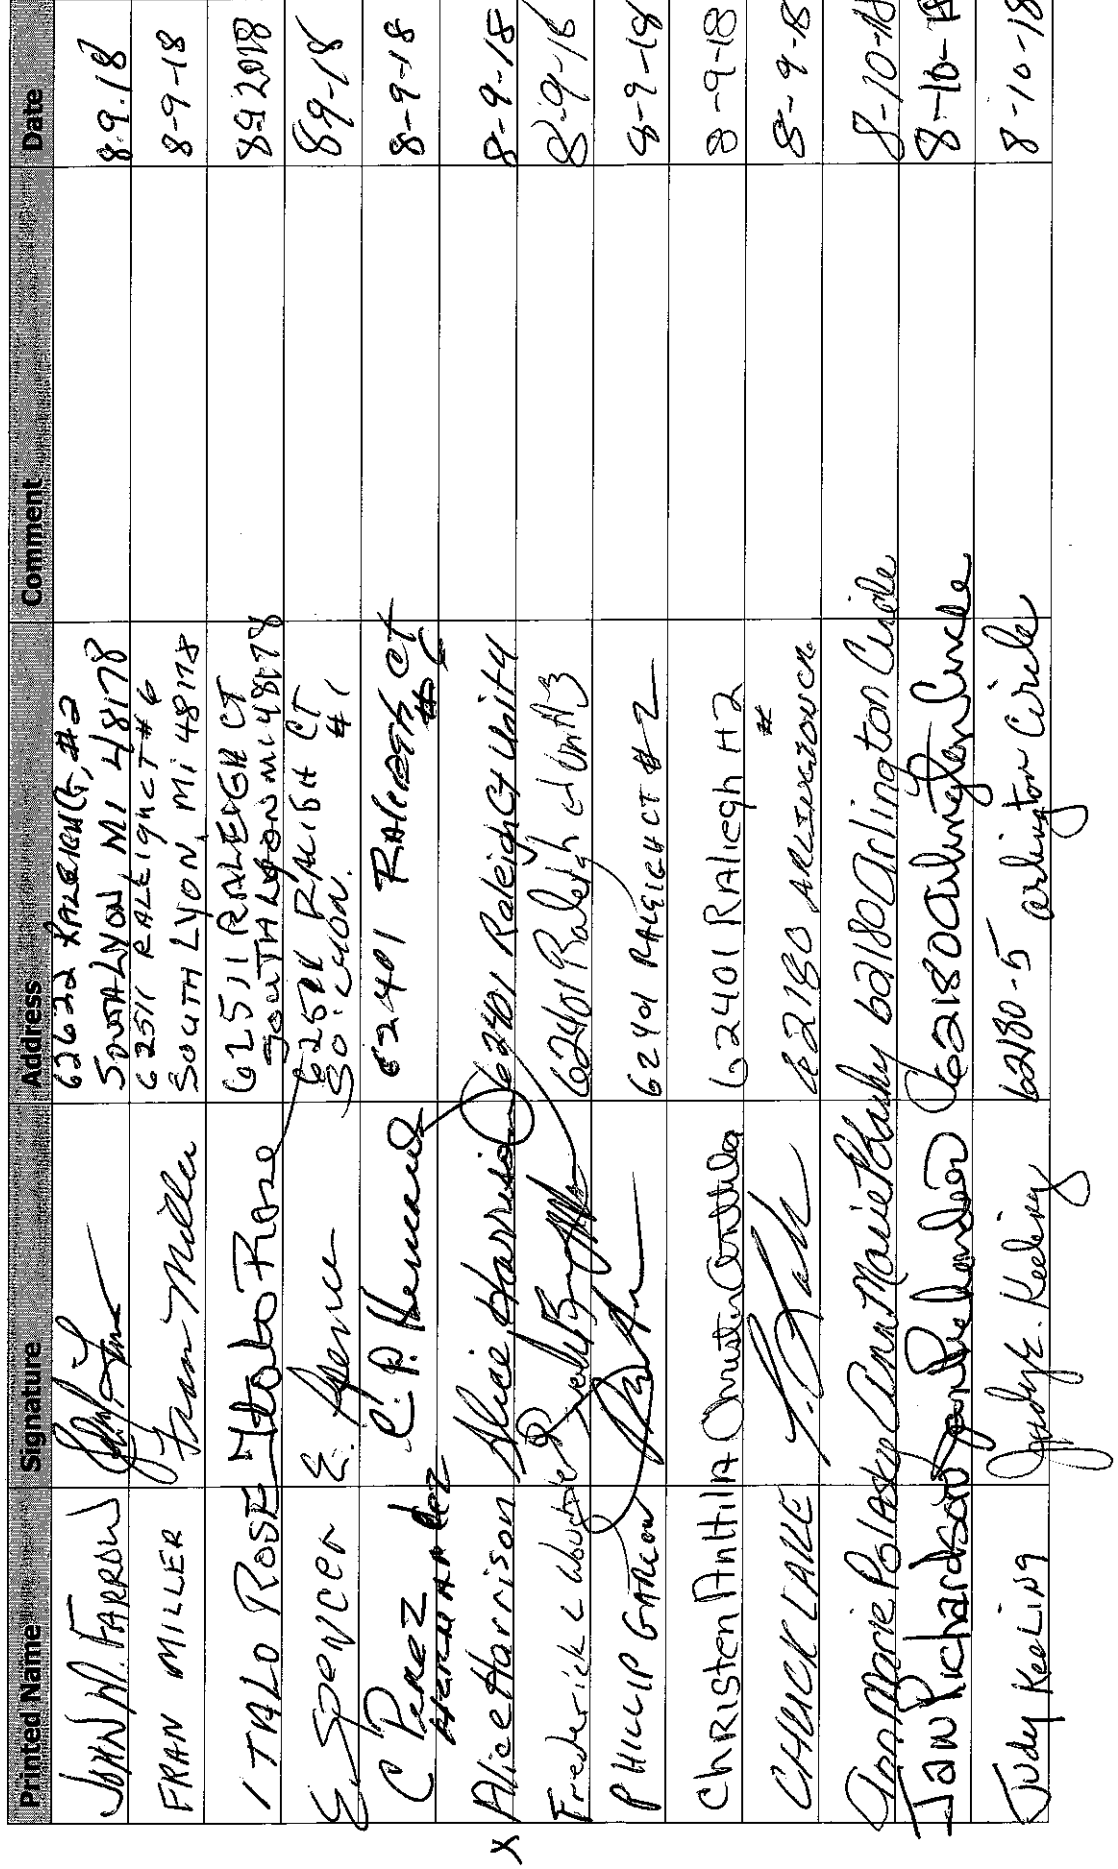 Printed Name Signature Address Comment Date
JOHN M. FARROW 62622 RALEIGH Ct, #2 8-9-18
SOUTH LYON MI 48178
FRAN MILLER Fran Miller 62511 RALEIGH CT #6 8-9-18
SOUTH LYON, Mi 48178
ITALO ROSE Italo Rose 62511 RALEIGH CT 8-9 2018
SOUTH LYON MI 48178
E. Spencer E. Spencer CT 89-18
SO. LYON. #1
C Perez C.P. Hernandez 62401 Raleigh Ct 8-9-18
Hernandez
x Alice Harrison Alice Harrison 62401 Raleigh Ct Unit 4 8-9-18
Frederick L 62401 Raleigh ct Unit 3 8-9-18
PHILLIP 62401 RALEIGH CT #2 8-9-18
Christen Anttila Christen Anttila 62401 Raliegh #2 8-9-18
CHUCK LAKE 62180 ARLINGTON CR. # 8-9-18
Ann Marie Polasky Ann Marie Polasky 62180 Arlington Circle 8-10-18
Jan Richardson Jan Richardson 62180 Arlington Circle 8-10-18
Judy Keeling Judy E. Keeling 62180-5 arlington Circle 8-10-18